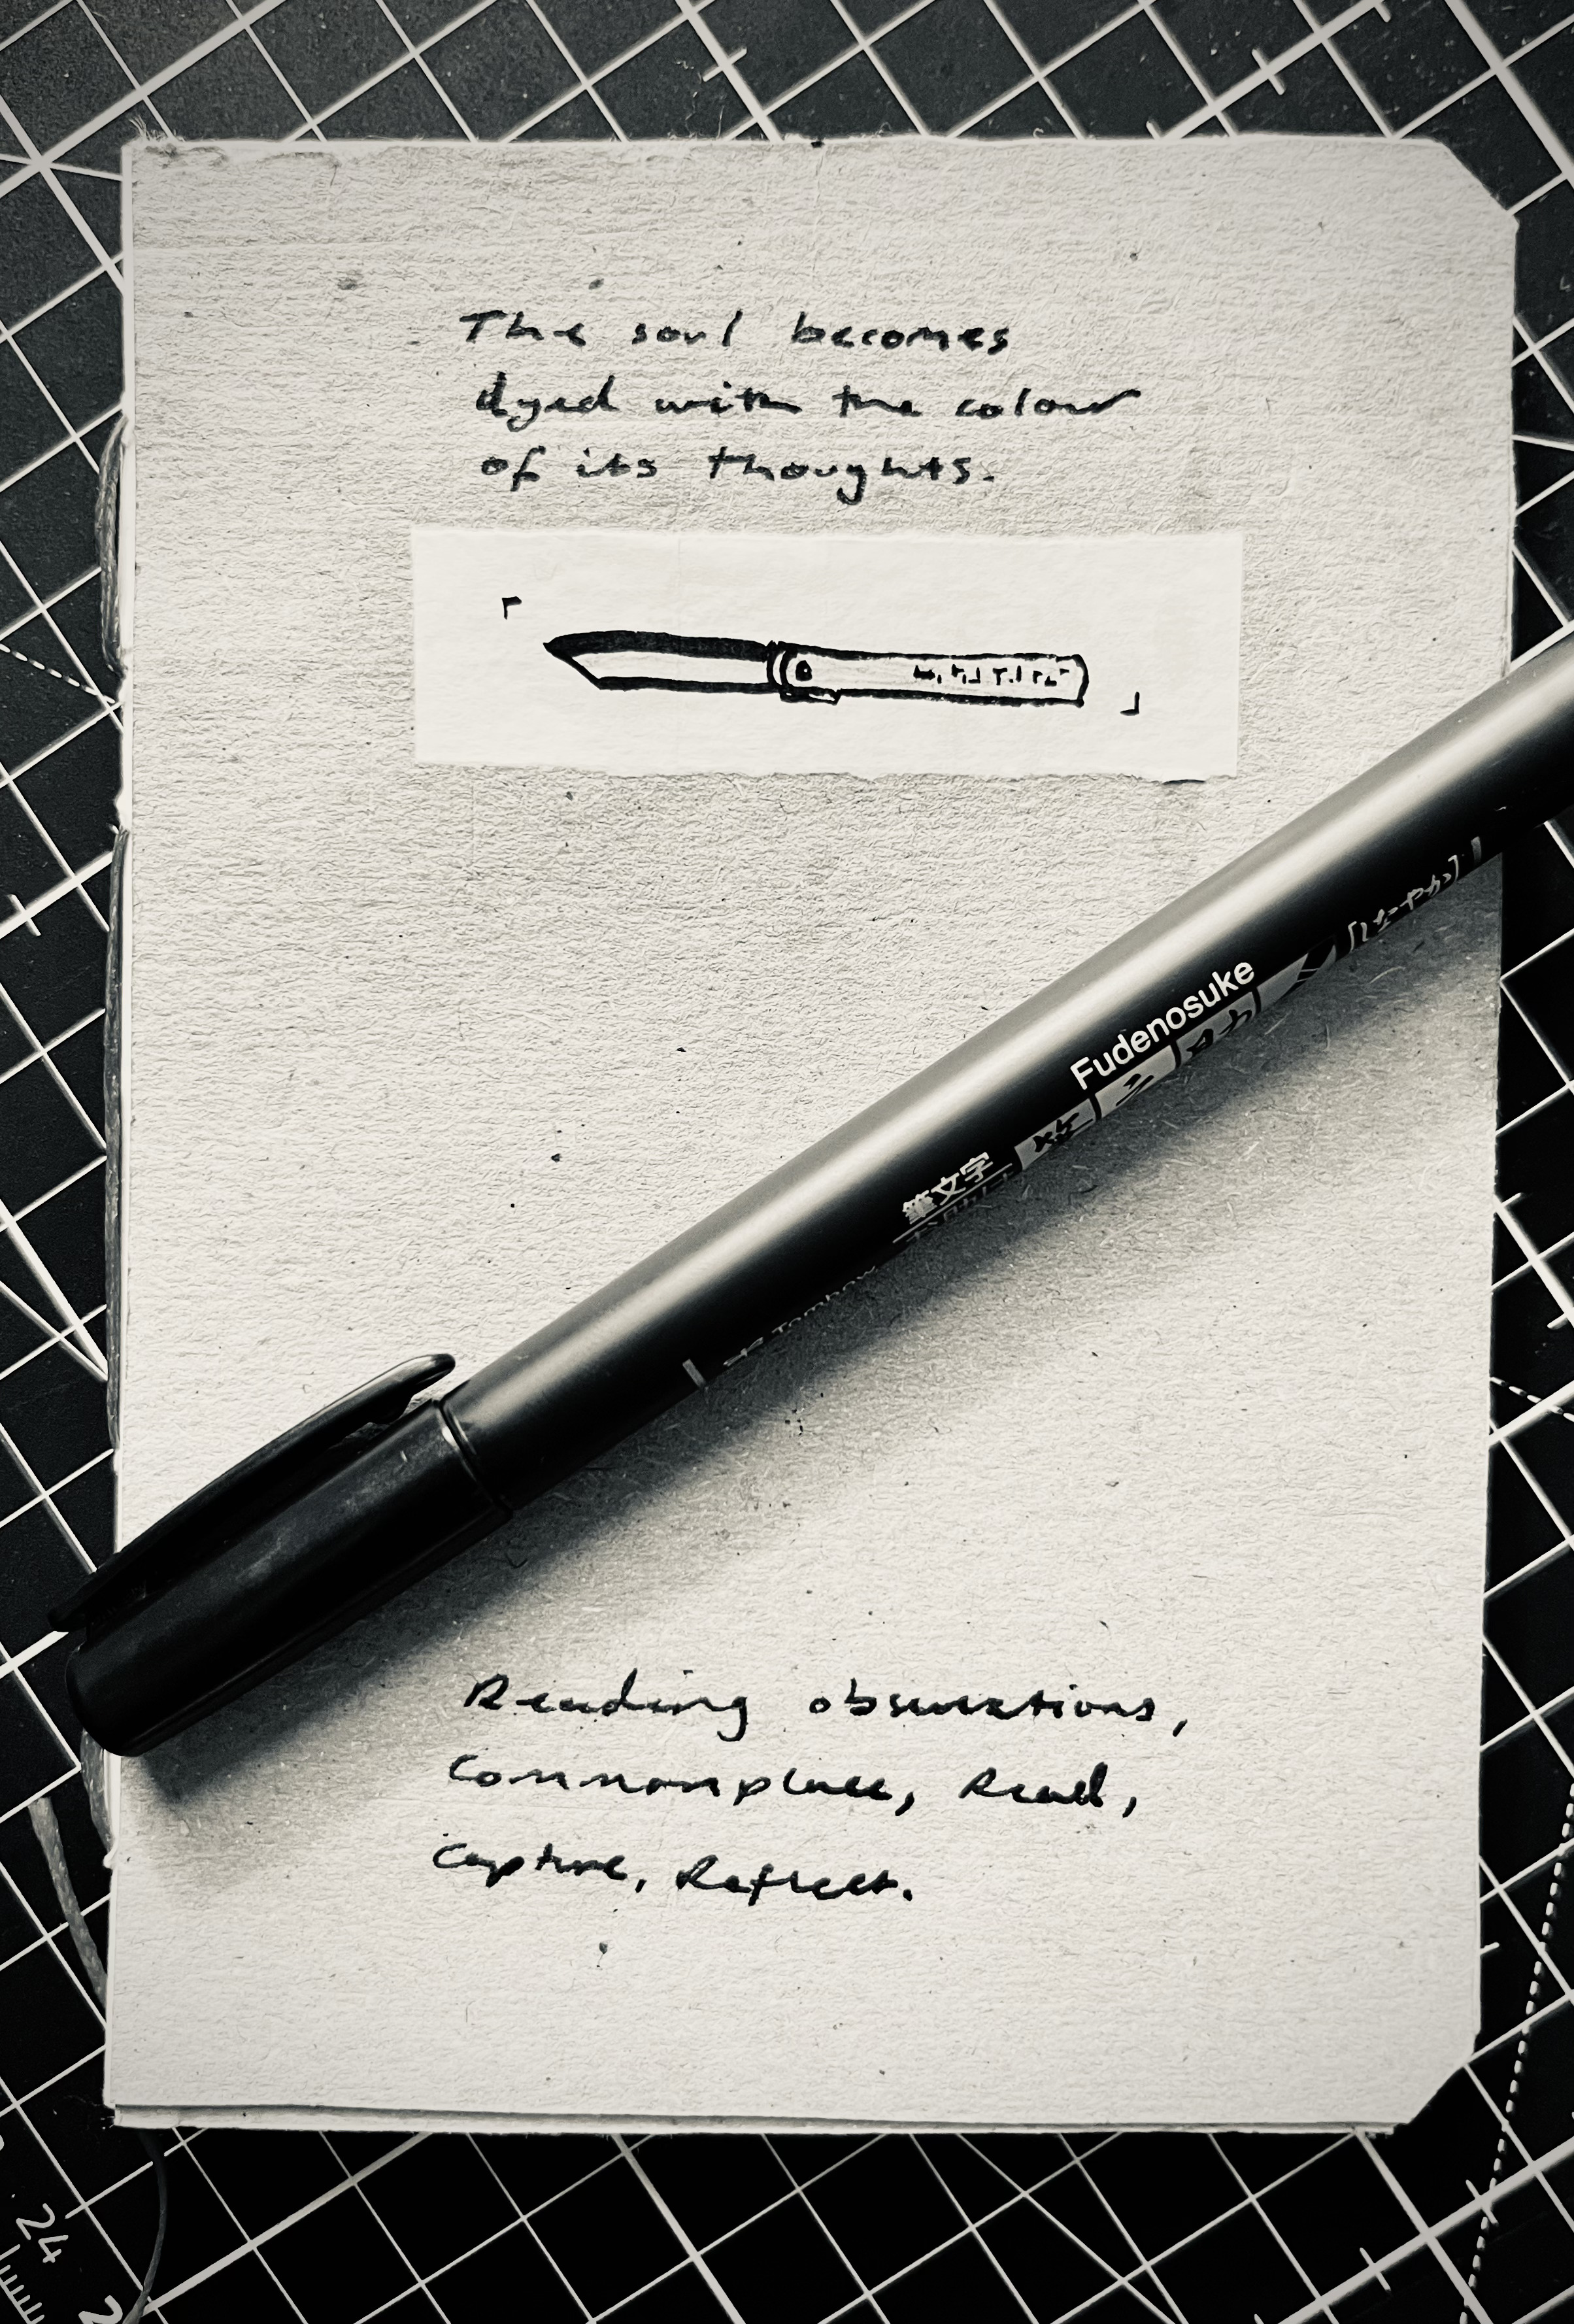 The soul becomes
dyed with the colour
of its thoughts.
Fudenosuke
筆文字
Tombow
Reading observations,
Commonplace, Read,
Capture, Reflect.
24
2